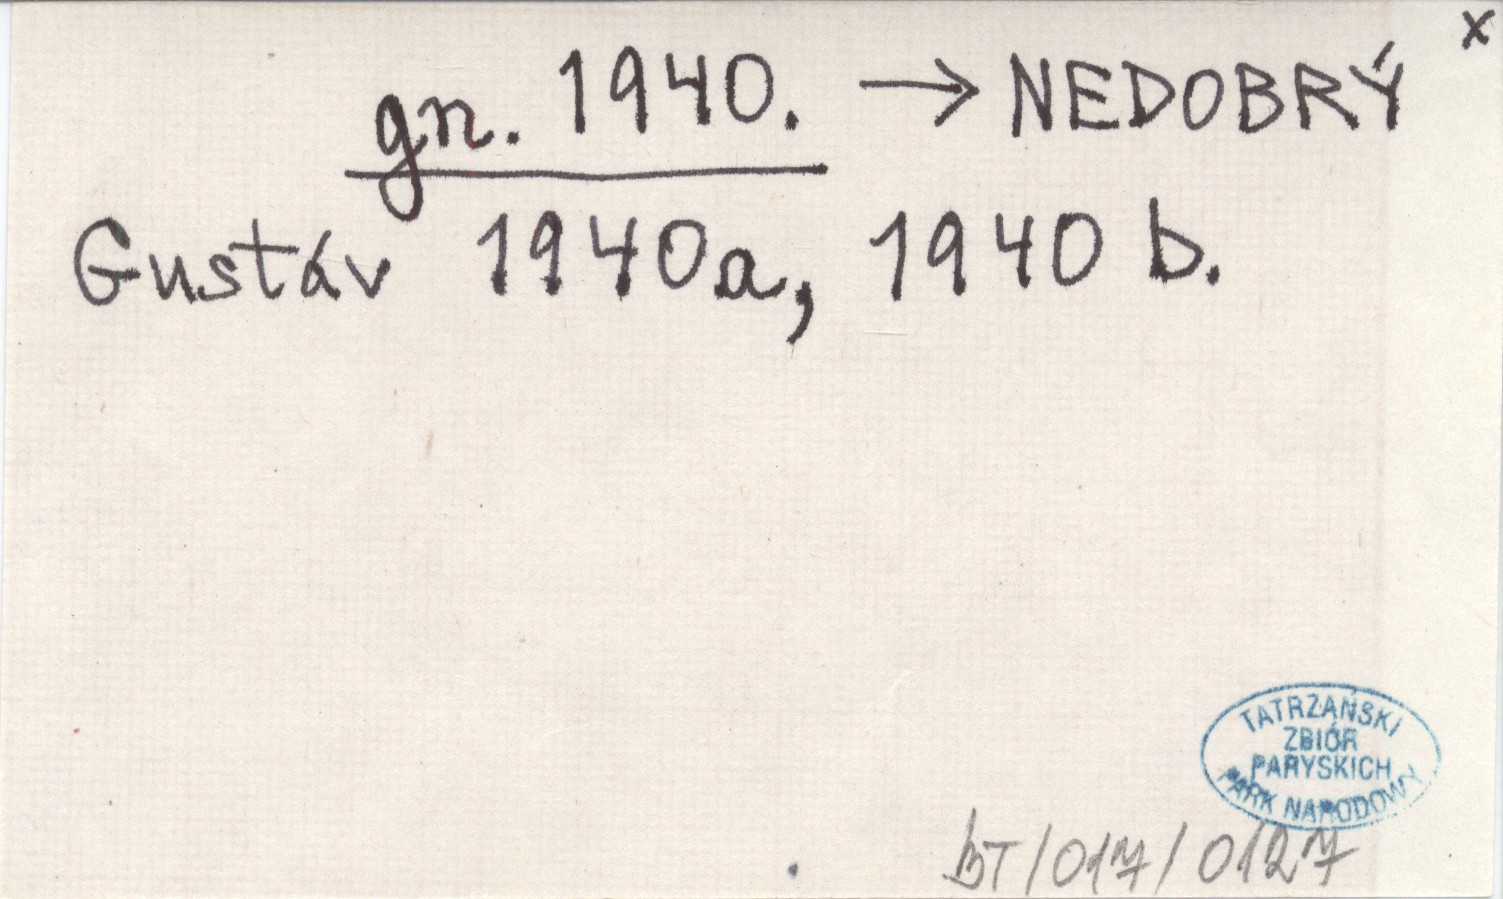 x
gn. 1940. → NEDOBRÝ
Gustáv 1940a, 1940 b.
TATRZAŃSKI
ZBIÓR
PARYSKICH
PARK NARODOWY
BT/017/0127